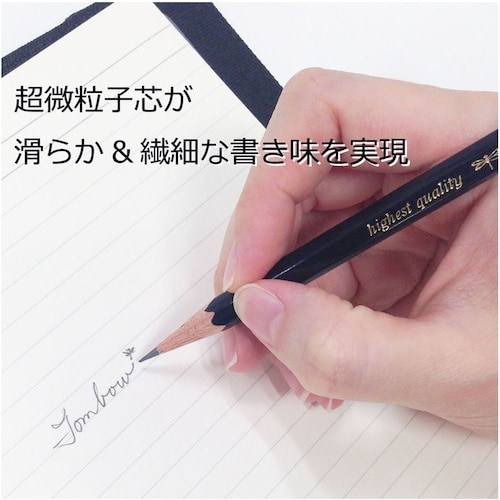 超微粒子芯が
滑らか & 繊細な書き味を実現
highest quality
Tombow